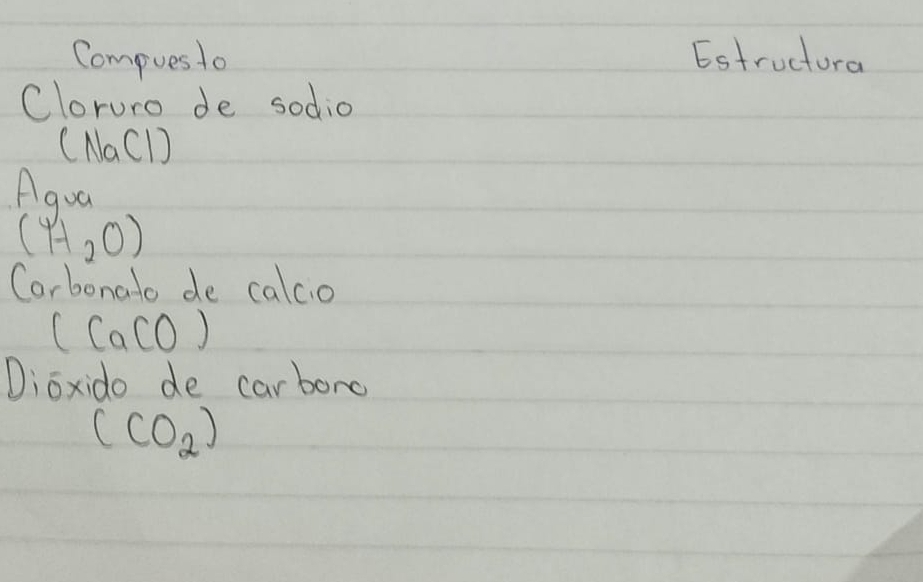 Compuesto Estructura
Cloruro de sodio
(NaCl)
Agua
(H₂O)
Carbonato de calcio
(CaCO)
Dióxido de carbono
(CO₂)